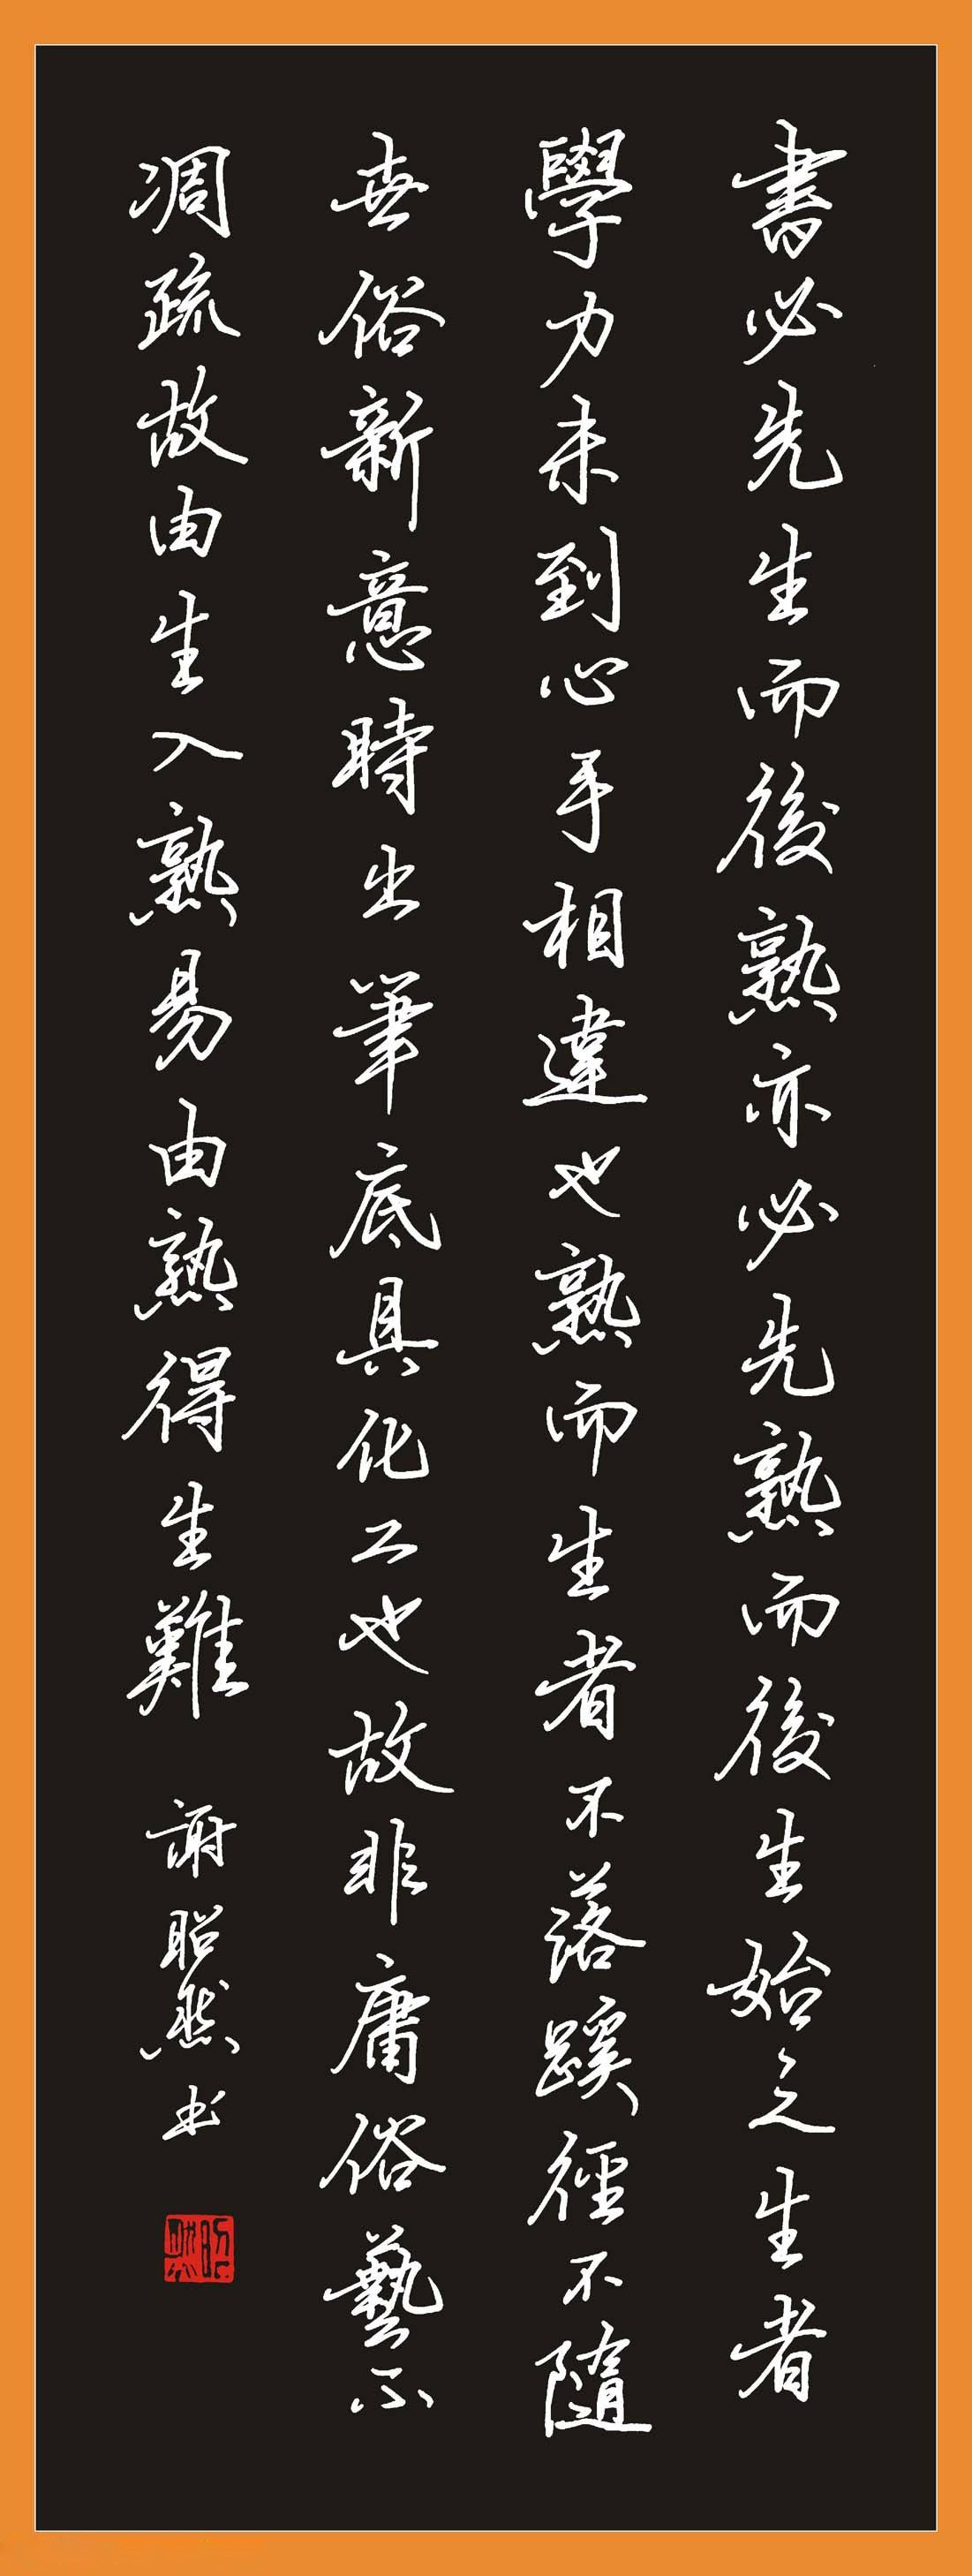 書必先生而後熟亦必先熟而後生始之生者
學力未到心手相違也熟而生者不落蹊徑不隨
世俗新意時出筆底具化工也故非庸俗藝不
凋疏故由生入熟易由熟得生難
謝昭然书
昭然